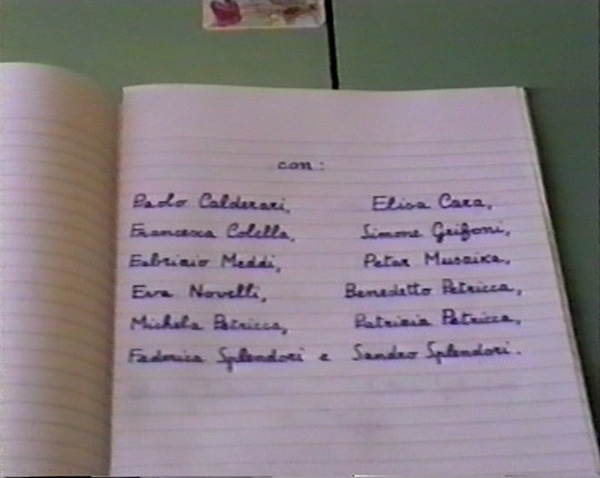 con:
Paolo Calderari, Elisa Cara,
Francesca Colella, Simone Grifoni,
Fabrizio Meddi, Peter Musaixa,
Eva Novelli, Benedetto Petricca,
Michela Petricca, Patrizia Petricca,
Federica Splendori e Sandro Splendori.